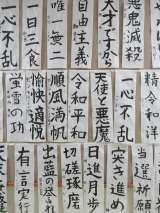 悪鬼滅殺
自由主義
唯一無二
一日三食
一心不乱
一心不乱
天使と悪魔
令和平和
順風満帆
愉快適悦
蛍雪の功
当選祈願
突き進め
日進月歩
切磋琢磨
出藍の誉れ
有言実行